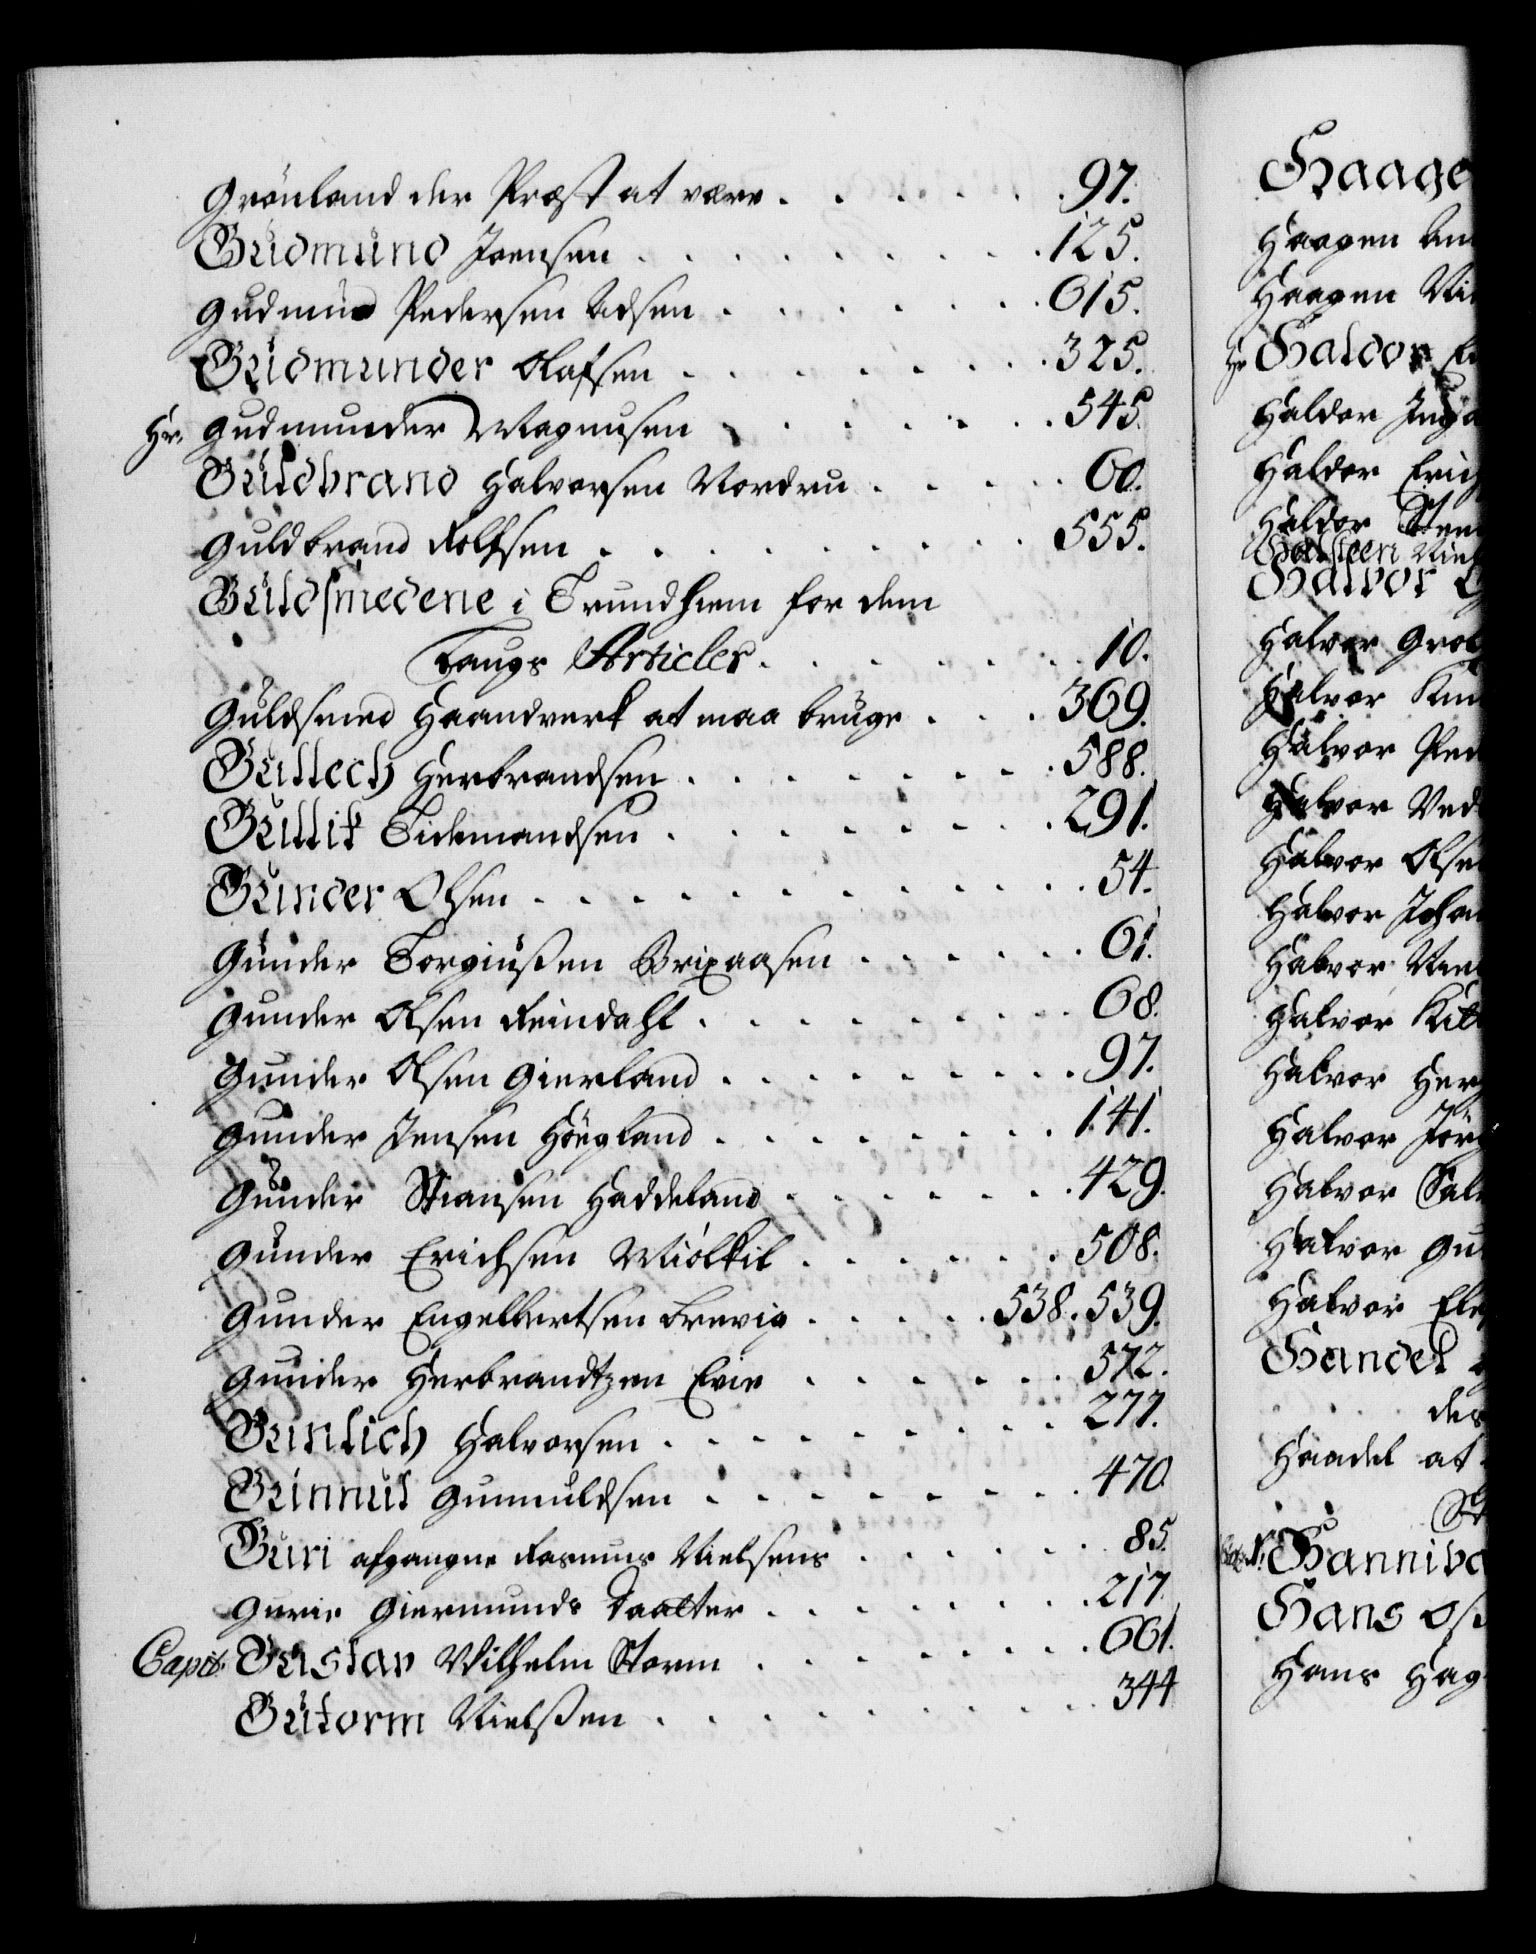 Grönland der Præst at være . . . . . . 97.
Gudmund Joensen . . . . . . . . . 125.
Gudmund Pedersen Adsen . . . . . . . 615.
Gudmunder Olafsen . . . . . . . . 325.
Hr. Gudmunder Magnusen . . . . . . . 545.
Guldbrand Halvorsen Nordru . . . . . 60.
Guldbrand Rolfsen . . . . . . . . . 555.
Guldsmedene i Trundhiem for dem
Laugs Articler . . . . . . . . 10.
Guldsmed Haandverk at maa bruge . . . 369.
Gullech Herbrandsen . . . . . . . . 588.
Gullik Tidemandsen . . . . . . . . . 291.
Gunder Olsen . . . . . . . . . . . . 54.
Gunder Torgiussen Brixaasen . . . . . . 61.
Gunder Olsen Reindahl . . . . . . . . . 68.
Gunder Olsen Gierland . . . . . . . . . 97.
Gunder Jensen Höegland . . . . . . . . 141.
Gunder Stiansen Haddeland . . . . . . . 429.
Gunder Erichsen Miölkil . . . . . . 508.
Gunder Engelbertsen Brevig . . . . . 538. 539.
Gunder Herbrandtzen Evie . . . . . . 572.
Gunlich Halvorsen . . . . . . . . . 277.
Gunnul Gunnuldsen . . . . . . . . . 470
Guri afgangne Rasmus Nielsens . . . . . . 85.
Gurie Giermunds Daatter . . . . . . . . 217.
Capit. Gustav Wilhelm Storm . . . . . . . . 661.
Gutorm Nielssen . . . . . . . . . . 344
Haage
Haagen
Haagen
Hr. Haldor
Haldor
Haldor Erich
Haldor Sten
Halsteen Niel
Halvor
Halvor
Halvor
Halvor Ped
Halvor
Halvor Olsen
Halvor Johan
Halvor
Halvor
Halvor
Halvor Jör
Halvor
Halvor
Halvor
Handel
des
Handel at
Hanniba
Hans
Hans